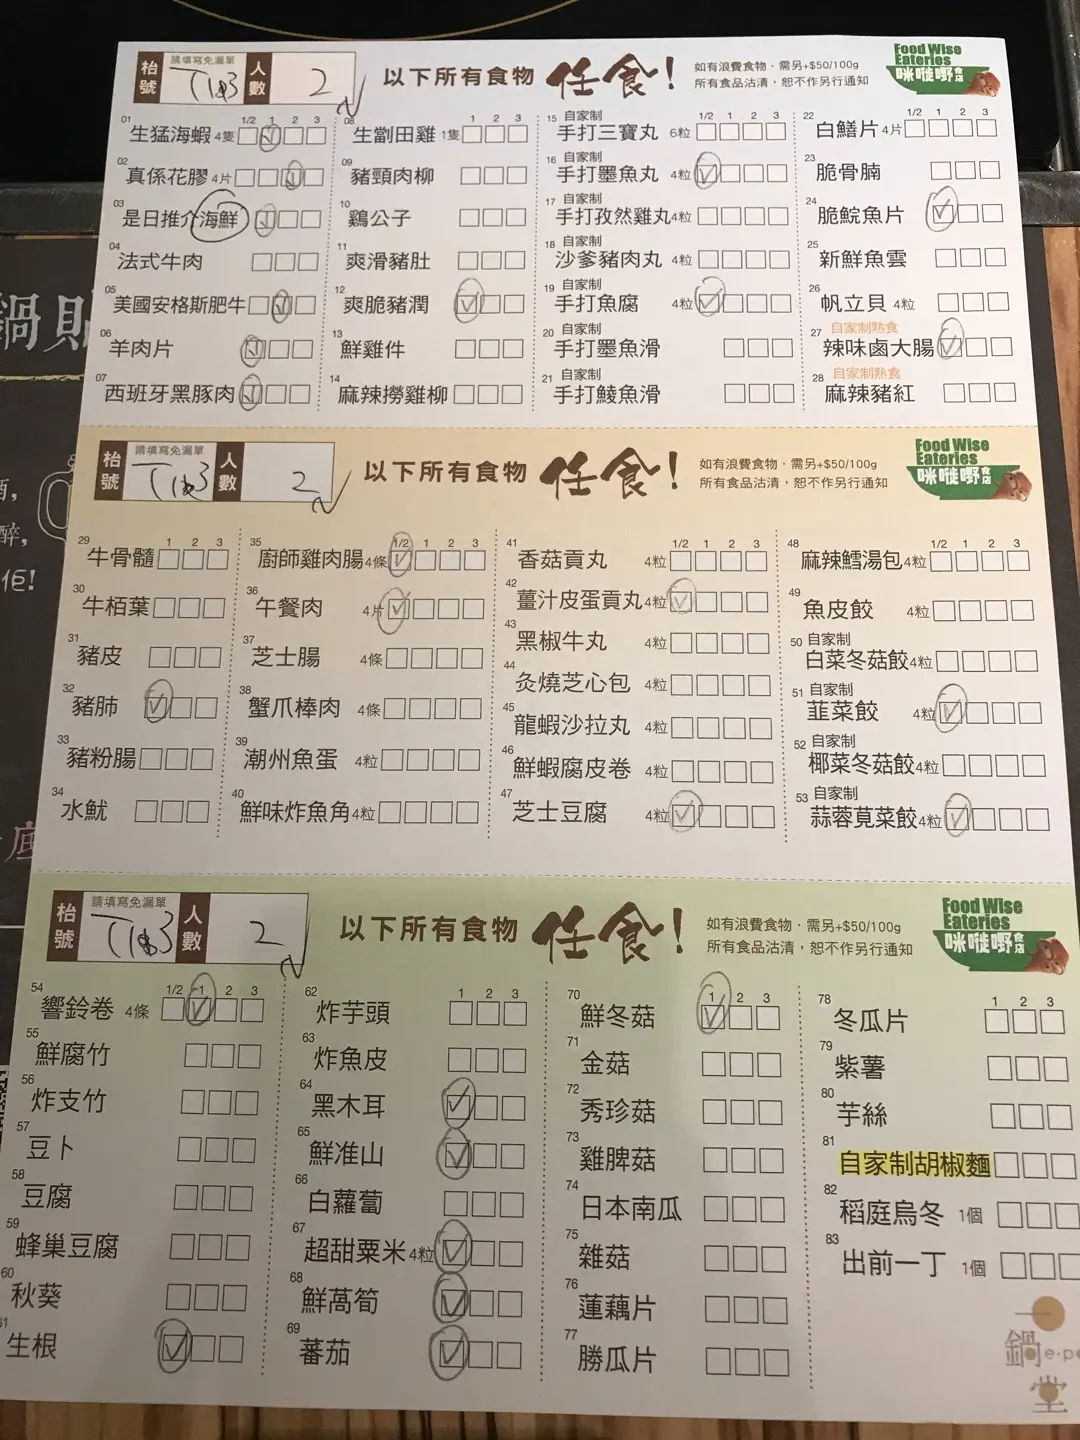 枱號
請填寫免漏單
人數
2
以下所有食物 任食!
如有浪費食物‧需另+$50/100g
所有食品沽清，恕不作另行通知
Food Wise
Eateries
咪嘥嘢食店
1/2 1 2 3
01 生猛海蝦 4隻
02 真係花膠 4片
03 是日推介海鮮
04 法式牛肉
05 美國安格斯肥牛
06 羊肉片
07 西班牙黑豚肉
1 2 3
08 生劏田雞 1隻
09 豬頸肉柳
10 鷄公子
11 爽滑豬肚
12 爽脆豬潤
13 鮮雞件
14 麻辣撈雞柳
1/2 1 2 3
15 自家制
手打三寶丸 6粒
16 自家制
手打墨魚丸 4粒
17 自家制
手打孜然雞丸 4粒
18 自家制
沙爹豬肉丸 4粒
19 自家制
手打魚腐 4粒
20 自家制
手打墨魚滑
21 自家制
手打鯪魚滑
1/2 1 2 3
22 白鱔片 4片
23 脆骨腩
24 脆鯇魚片
25 新鮮魚雲
26 帆立貝 4粒
27 自家制熟食
辣味鹵大腸
28 自家制熟食
麻辣豬紅
枱號
請填寫免漏單
人數
2
以下所有食物 任食!
如有浪費食物‧需另+$50/100g
所有食品沽清，恕不作另行通知
Food Wise
Eateries
咪嘥嘢食店
1 2 3
29 牛骨髓
30 牛栢葉
31 豬皮
32 豬肺
33 豬粉腸
34 水魷
1/2 1 2 3
35 廚師雞肉腸 4條
36 午餐肉 4片
37 芝士腸 4條
38 蟹爪棒肉 4條
39 潮州魚蛋 4粒
40 鮮味炸魚角 4粒
1/2 1 2 3
41 香菇貢丸 4粒
42 薑汁皮蛋貢丸 4粒
43 黑椒牛丸 4粒
44 灸燒芝心包 4粒
45 龍蝦沙拉丸 4粒
46 鮮蝦腐皮卷 4粒
47 芝士豆腐 4粒
1/2 1 2 3
48 麻辣鱈湯包 4粒
49 魚皮餃 4粒
50 自家制
白菜冬菇餃 4粒
51 自家制
韮菜餃 4粒
52 自家制
椰菜冬菇餃 4粒
53 自家制
蒜蓉莧菜餃 4粒
枱號
請填寫免漏單
人數
2
以下所有食物 任食!
如有浪費食物‧需另+$50/100g
所有食品沽清，恕不作另行通知
Food Wise
Eateries
咪嘥嘢食店
1/2 1 2 3
54 響鈴卷 4條
55 鮮腐竹
56 炸支竹
57 豆卜
58 豆腐
59 蜂巢豆腐
60 秋葵
61 生根
1 2 3
62 炸芋頭
63 炸魚皮
64 黑木耳
65 鮮准山
66 白蘿蔔
67 超甜粟米 4粒
68 鮮萵筍
69 蕃茄
1 2 3
70 鮮冬菇
71 金菇
72 秀珍菇
73 雞脾菇
74 日本南瓜
75 雜菇
76 蓮藕片
77 勝瓜片
1 2 3
78 冬瓜片
79 紫薯
80 芋絲
81 自家制胡椒麵
82 稻庭烏冬 1個
83 出前一丁 1個
一鍋堂
鍋貼
酒,
醉,
佢!
底